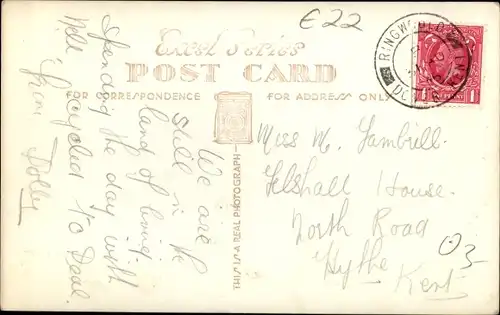 £22
Excel Series
POST CARD
FOR CORRESPONDENCE
FOR ADDRESS ONLY
RINGWOULD
THIS IS A REAL PHOTOGRAPH
We are
still in the
land of living.
Spending the day with
Nell. I cycled to Deal.
From Dolly
Miss M. Gambrill
Felshall House.
North Road
Hythe
Kent.
03-